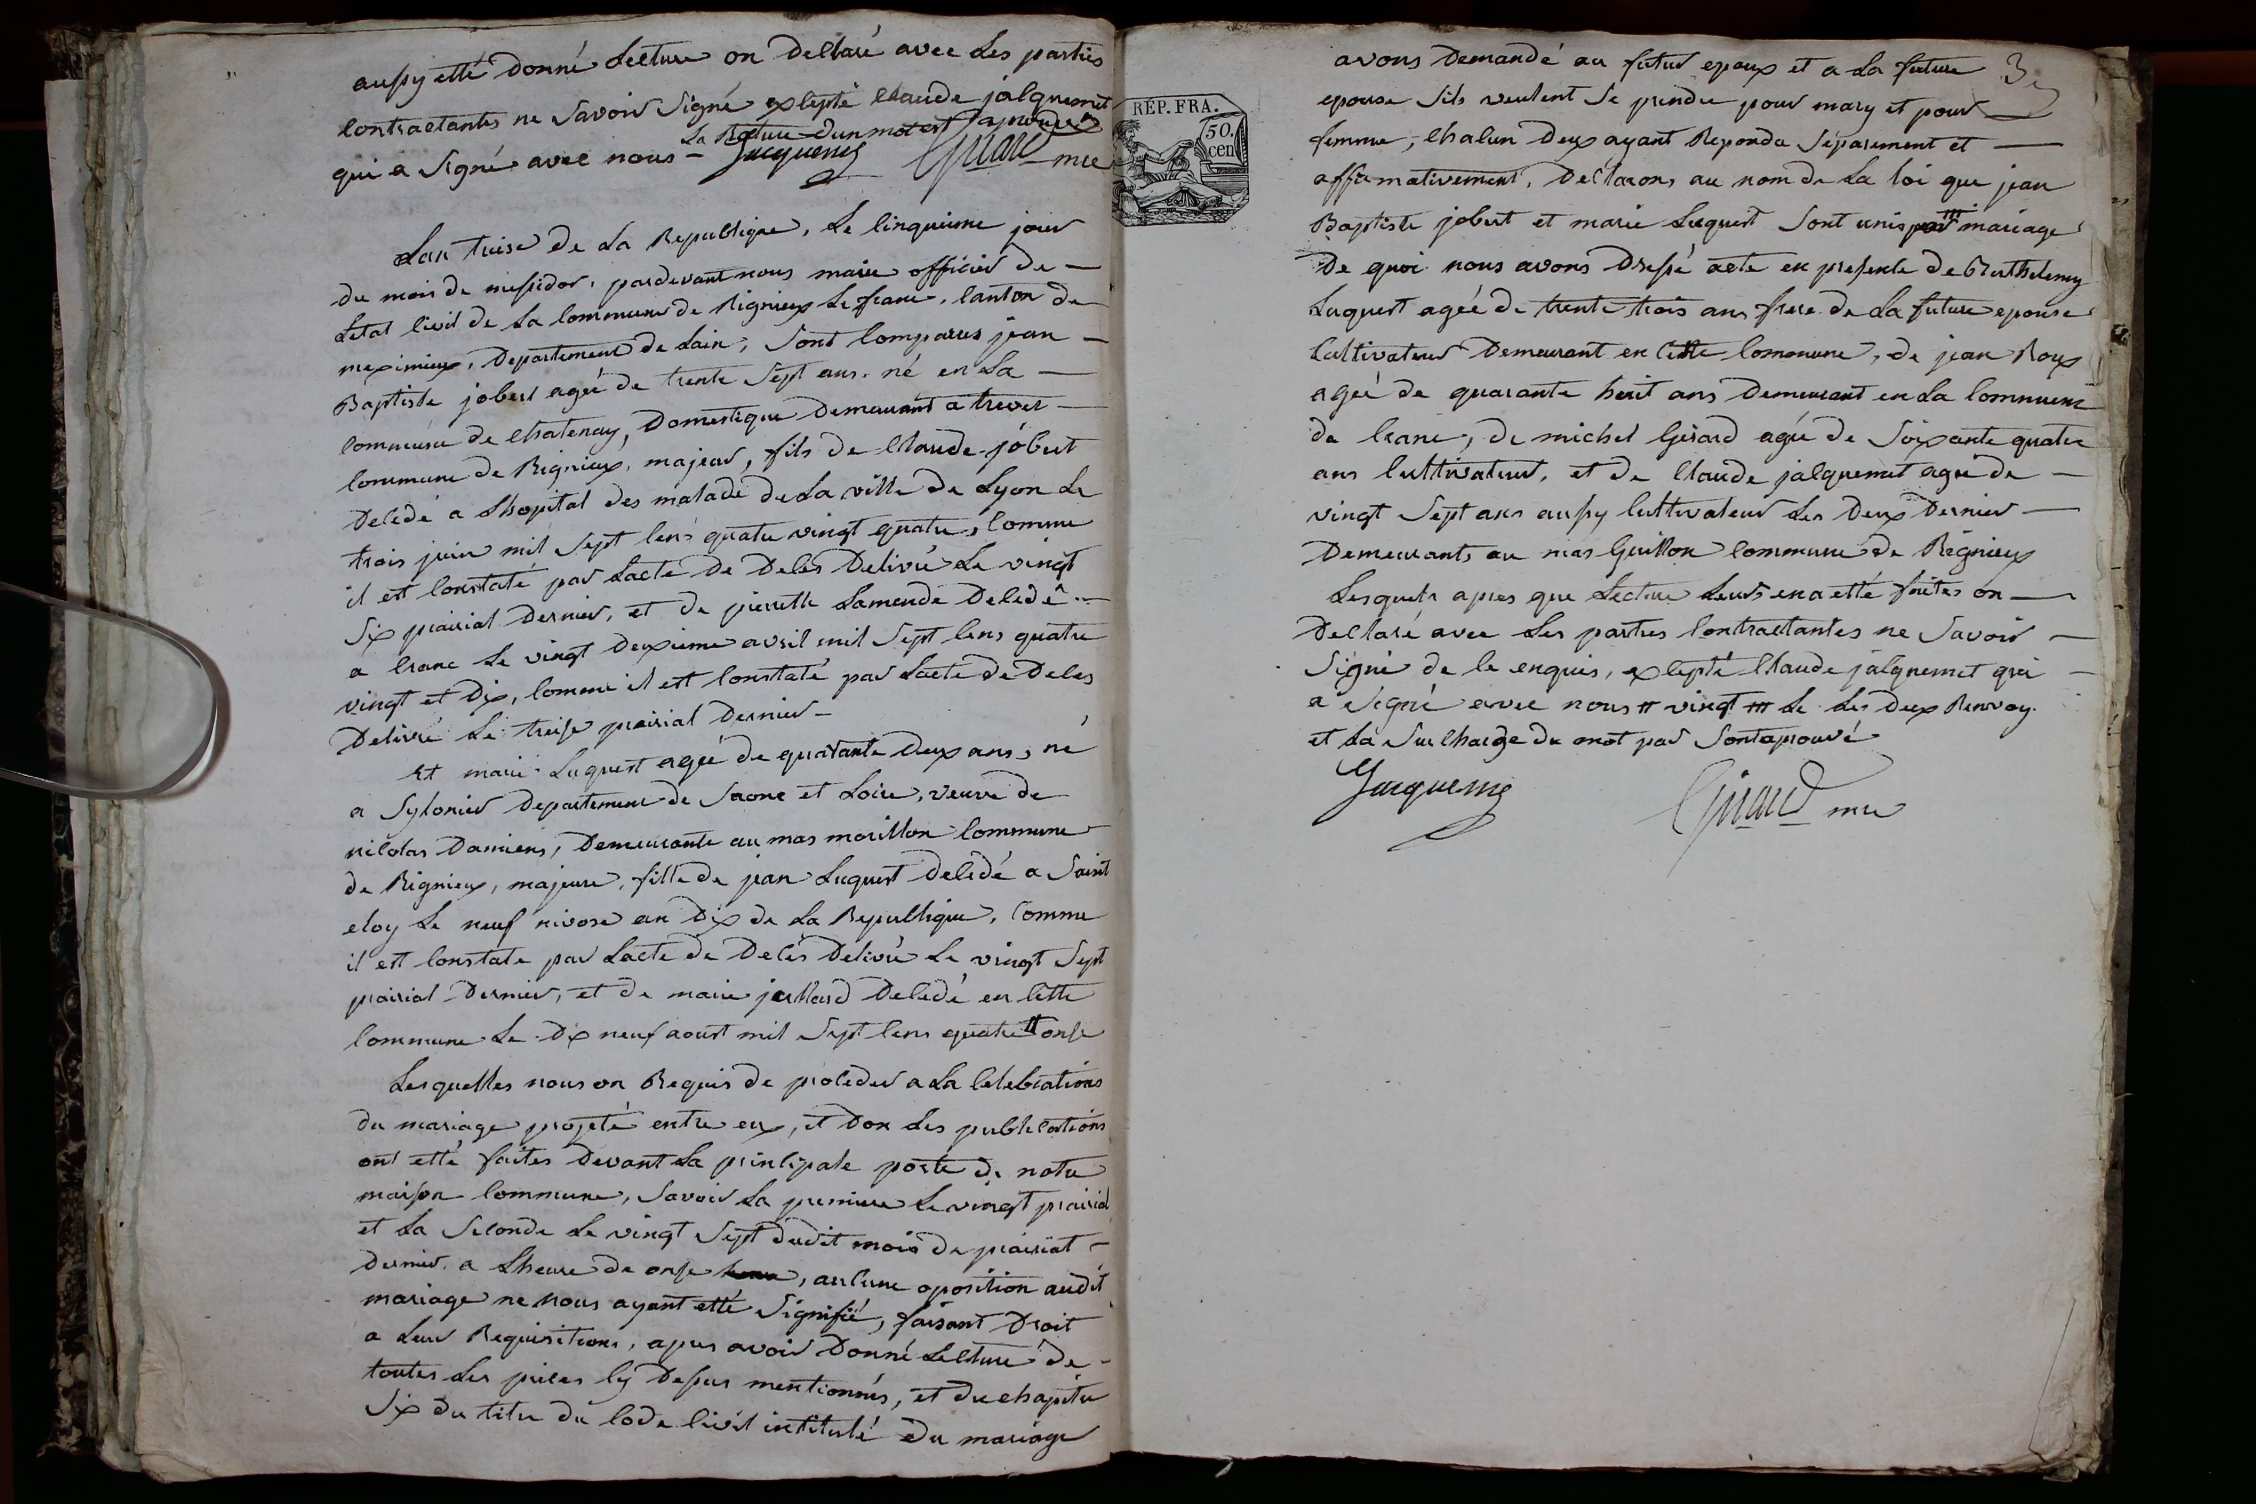 aussy etté donné Lecture on Declaré avec Les parties
Contractantes ne Savoir Signé excepté Claude jalquemet
La Rature d'un mot est aprouvée
qui a Signé avec nous – Jacquemet Girard mre
Lan treise de La Republique, Le Cinquieme jour
du mois de messidor, pardevant nous maire officier de –
Letat Civil de La Commune de Rignieux Le franc, Canton de
meximieux, Departement de Lain, Sont Comparus jean –
Baptiste jobert ageé de trente Sept ans, né en La –
Commune de Chatenay, Domestique Demeurant a trevet –
Commune de Rignieux, majeur, fils de Claude jobert
Decedé a Lhopital des malade de La ville de Lyon Le
trois juin mil Sept Cens quatre vingt quatre, Comme
il est Constaté par Lacte De Deces Delivré Le vingt
Six prairial Dernier, et de pierrette Lamende Decedé –
a Crane Le vingt Deuxieme avril mil Sept Cens quatre
vingt et Dix, Comme il est Constaté par Lacte de Deces
Delivré Le treise prairial Dernier –
Et marie Luquest ageé de quarante Deux ans, né
a Sylonier Departement de Saone et Loire, veuve de
nicolas Damiens, Demeurante au mas morillon Commune
de Rignieux, majeure, fille de jean Luquest Decédé a Saint
eloy Le neuf nivose an Dix de La Republique, Comme
il est Constate par Lacte de Decès Delivré Le vingt Sept
prairial Dernier, et de marie juillard Decedé en Cette
Commune Le Dix neuf aoust mil Sept Cens quatre # onse
Lesquelles nous on Requis de proceder a La Celebrations
du mariage projeté entre eux, et Don Les publications
ont etté faites Devant La principale porte de notre
maison Commune, Savoir La premiere Le vingt prairial
et La Seconde Le vingt Sept dudit mois de prairial –
Dernier a Lheure de onse heure, aucune oposition audit
mariage ne nous ayant etté Signifié, faisant Droit
a Leur Requisitions, apres avoir Donné Lecture de –
toutes Les pieces Cy Desus mentionnés, et du Chapitre
Six du titre du Code Civil intitulé Du mariage
RÉP. FRA.
50. cen
3
avons Demandé au futur epoux et a La future
epouse Sils veulent Se prendre pour mary et pour –
femme, Chalun Deux ayant Repondu Séparement et –
affirmativement, Déclarons au nom de La loi que jean
Baptiste jobert et marie Luquest Sont unis par ## mariage
De quoi nous avons Dressé acte en presente de Berthelemy
Luquest ageé de trente trois ans frere de La future epouse
Cultivateur Demeurant en Cette Commune, de jean Roux
ageé de quarante huit ans Demeurant en La Commune
de Crane, de michel Girard ageé de Soixante quatre
ans Cultivateur, et de Claude jalquemet agé de –
vingt Sept ans aussy Cultivateur Les Deux Dernier –
Demeurants au mas Guillon Commune de Rignieux
Lesquels apres que Lecture Leurs en a etté faites on –
Declaré avec Les parties Contractantes ne Savoir –
Signé de Ce enquis, excepté Claude jalquemet qui –
a Signé avec nous # vingt ## Le Les Deux Renvoy
et La Surcharge du mot par Sont aprouvé
Jacquemet Girard mre